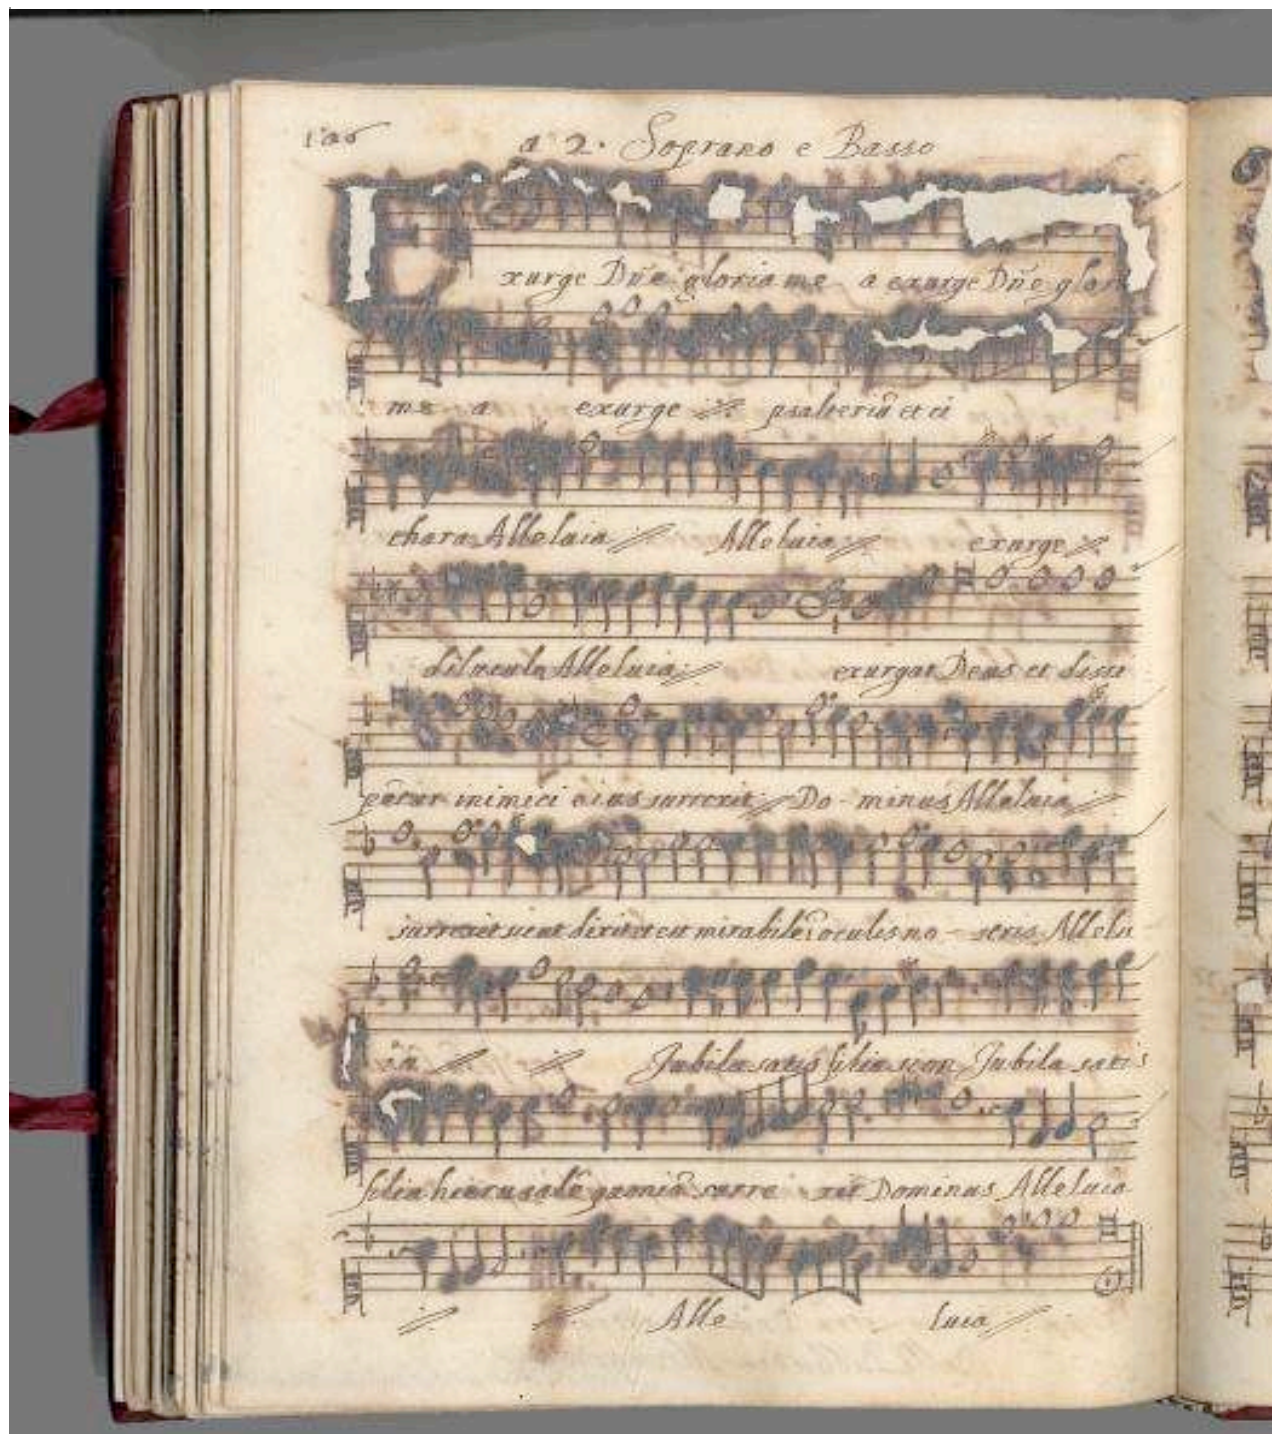 a 2. Soprano e Basso
xurge Dñe gloria me a exurge Dñe glor
me a exurge psalteriũ et ci
thara Alleluia Alleluia exurge
diluculo Alleluia exurgat Deus et dissi
pẽtur inimici eius surrexit Do minus Alleluia
surrexit sicut dixit et est mirabile ĩ oculis no stris Allelu
ia Jubila satis filia sion Jubila satis
filia hierusalẽ quoniã surre xit Dominus Alleluia
Alle luia